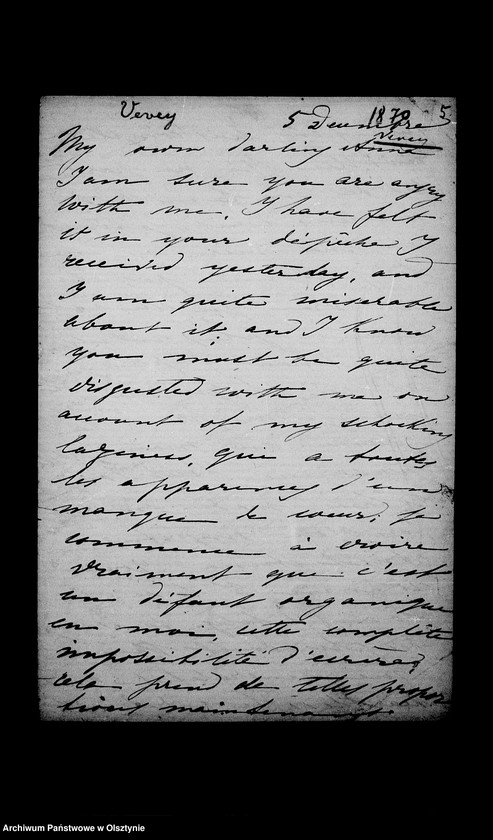 Vevey
5 Decembre 1870 5
Vevey
My own darling Anna
I am sure you are angry
with me, I have felt
it in your dépêche I
received yesterday, and
I am quite miserable
about it and I know
you must be quite
disgusted with me on
account of my schocking
laziness, qui a toutes
les apparences d'un
manque de coeur; je
commence à croire
vraiment que c'est
un défaut organique
en moi, cette complète
impossibilité d'écrire;
cela prend de telles propor
tions maintenant
Archiwum Państwowe w Olsztynie